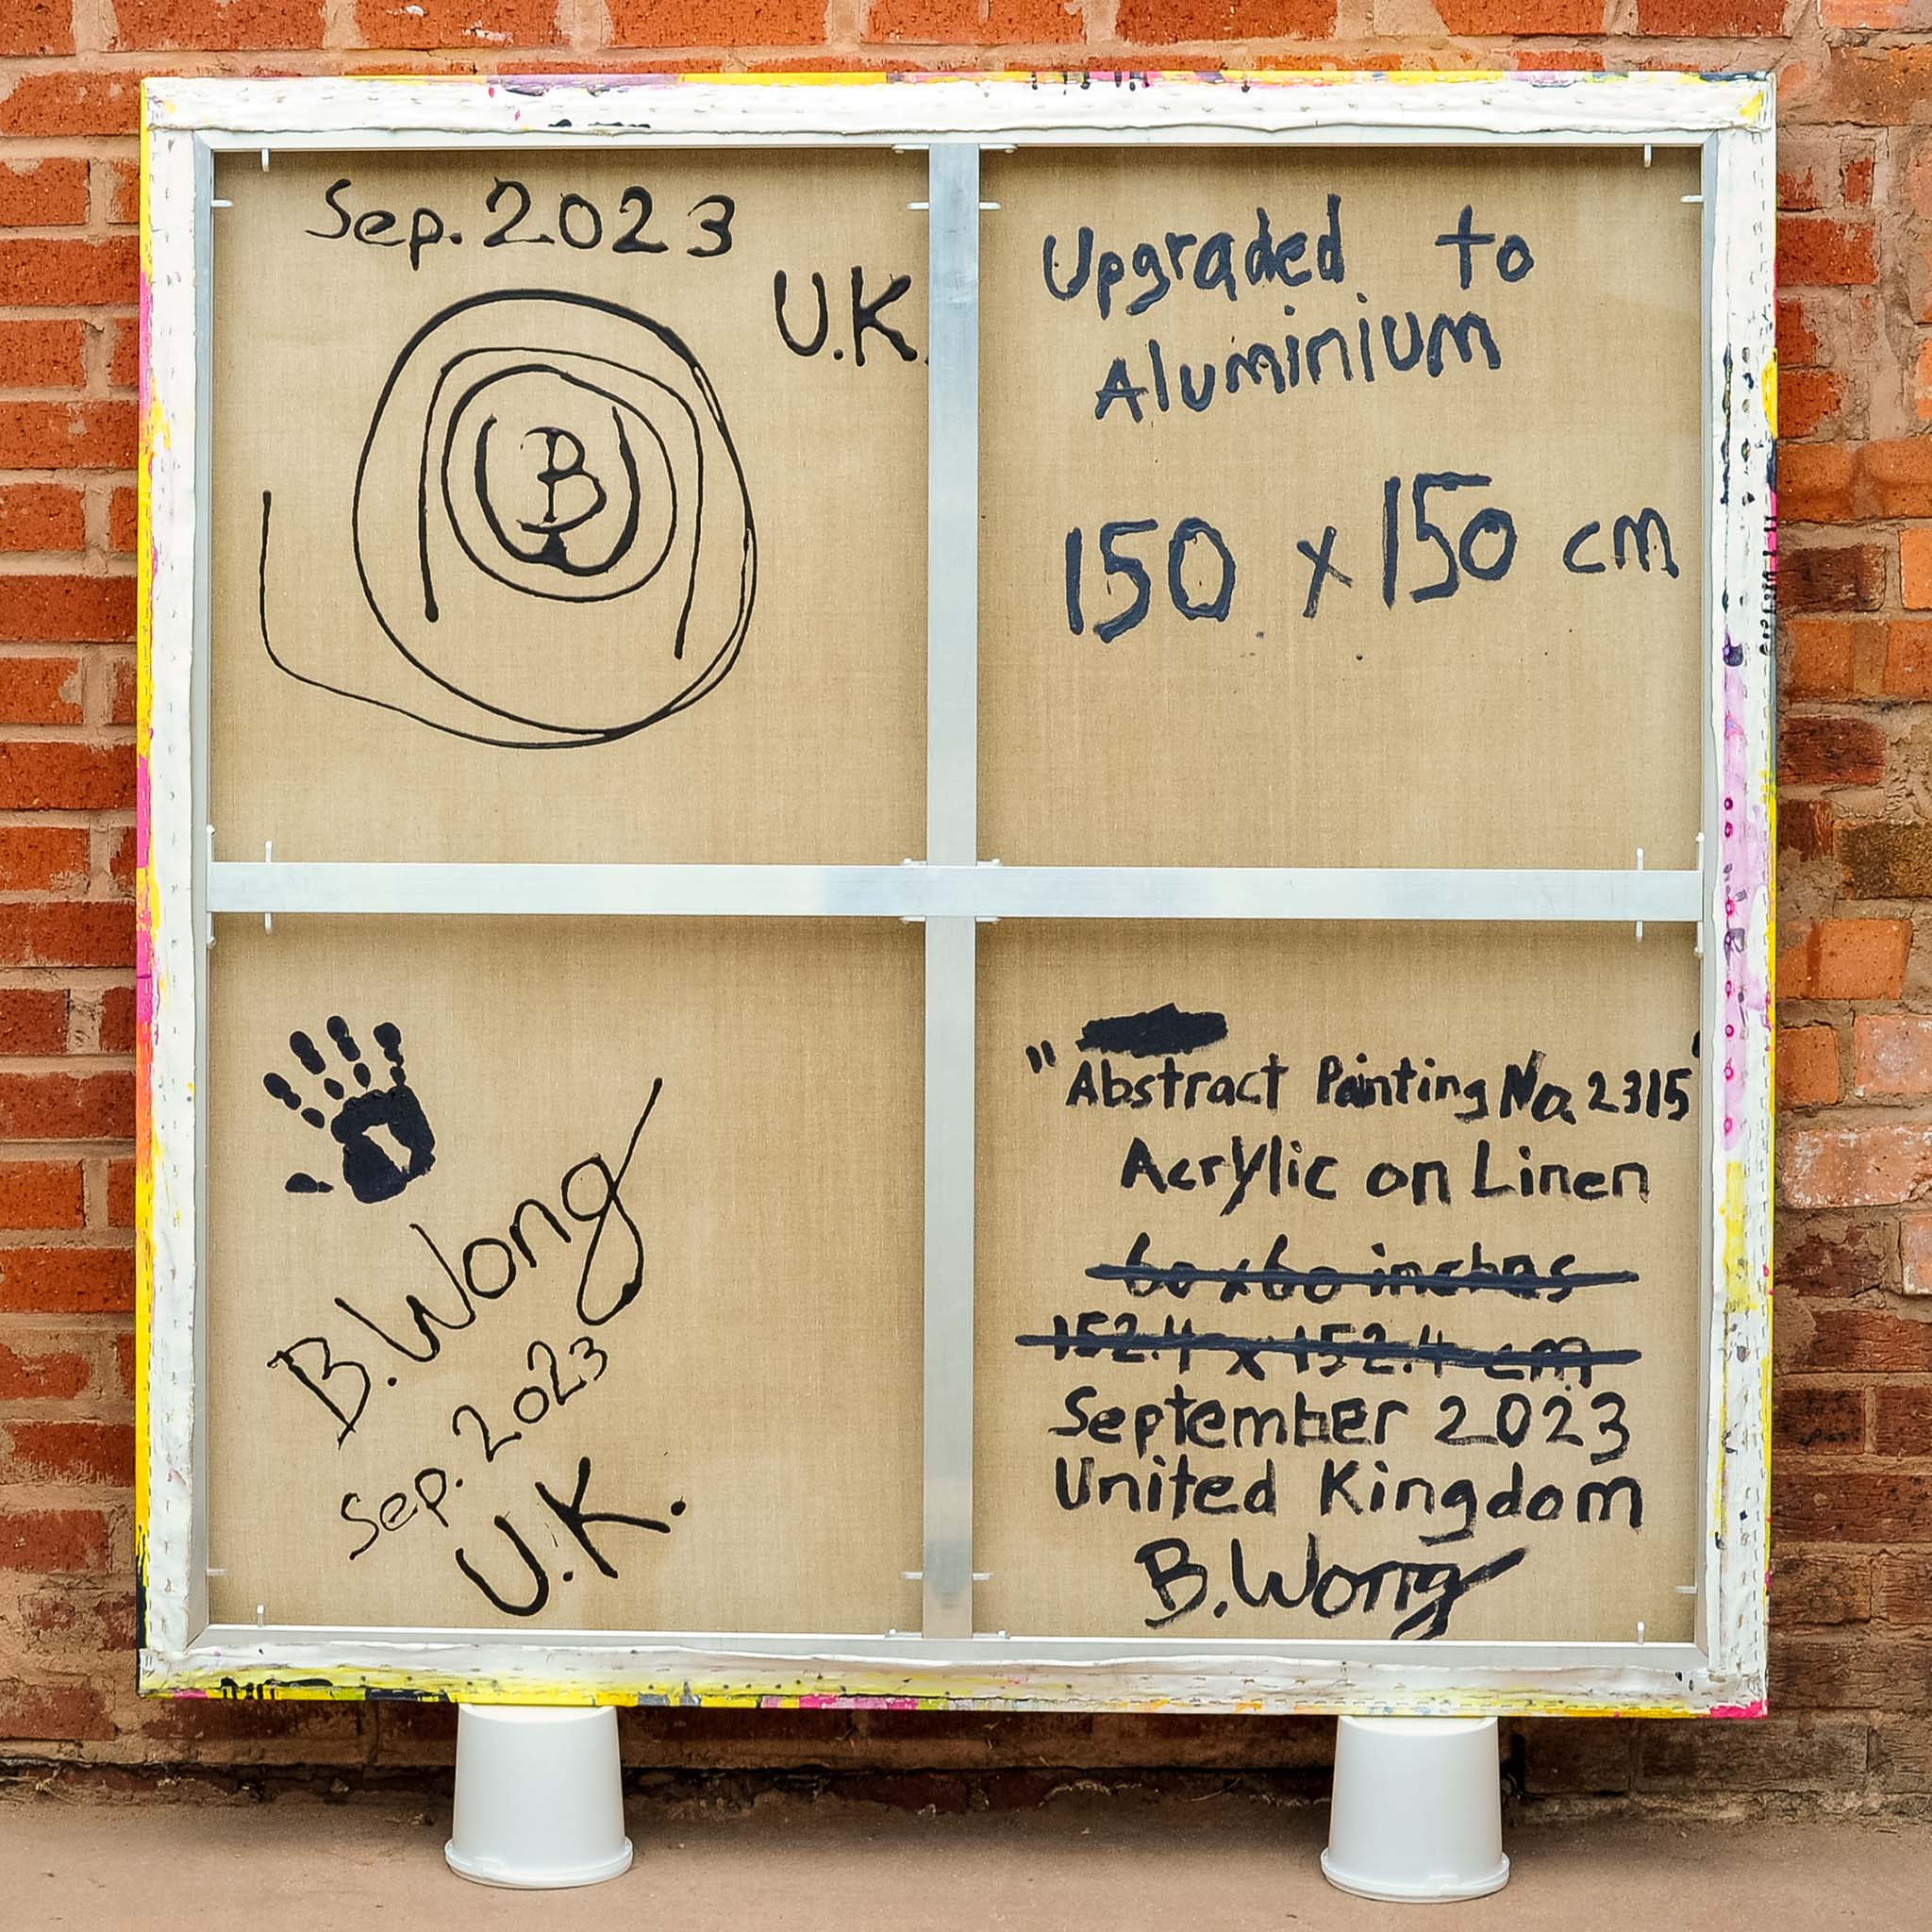 Sep. 2023
U.K.
B
Upgraded to
Aluminium
150 x 150 cm
B. Wong
Sep. 2023
U.K.
"Abstract Painting No. 2315"
Acrylic on Linen
60 x 60 inches
152.4 x 152.4 cm
September 2023
United Kingdom
B. Wong